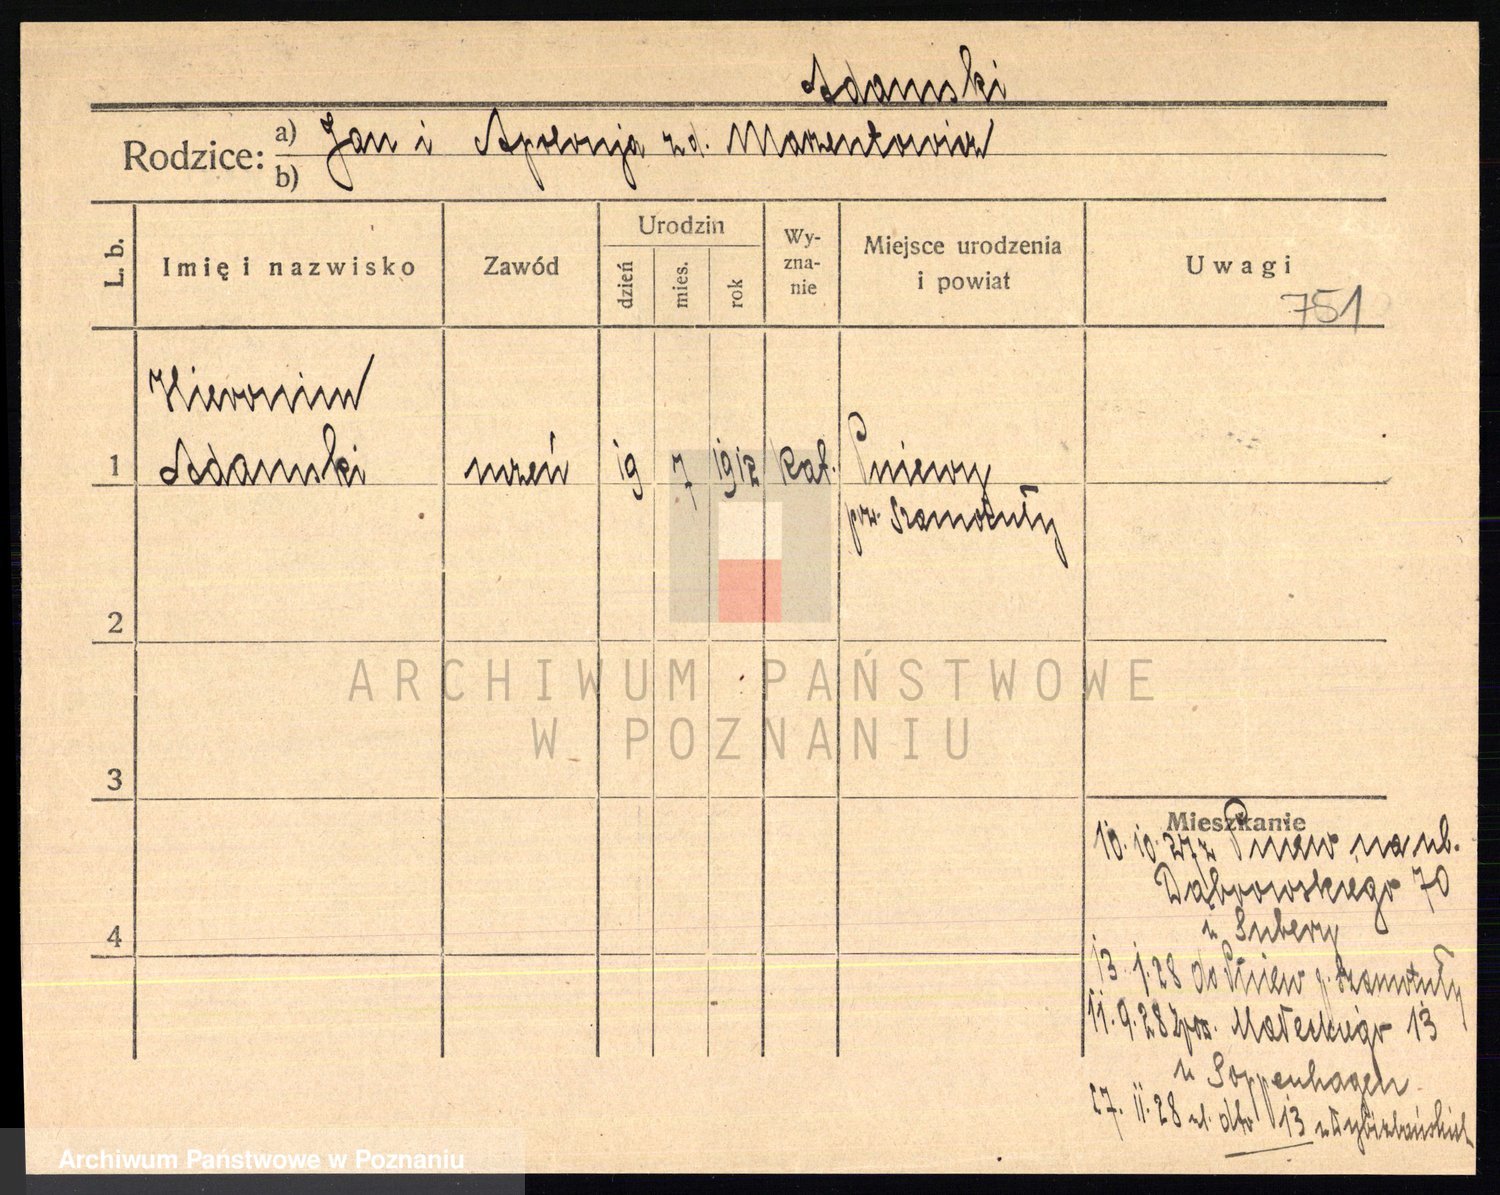 Adamski
Rodzice:
a) Jan i Apolonja zd. Marzentowicz
b)
L. b.
Imię i nazwisko
Zawód
Urodzin
dzień
mies.
rok
Wy-
zna-
nie
Miejsce urodzenia
i powiat
Uwagi
751
Hieronim
1 Adamski uczeń 19 7 1912 kat. Pniewy
pow. Szamotuły
2
3
4
ARCHIWUM PAŃSTWOWE
W POZNANIU
Mieszkanie
10.10.27 z Pniew na ul.
Dąbrowskiego 70
u
13.1.28 do Pniew p. Szamotuły
11.9.28 Małeckiego 13
u Soppenhagen
27.11.28 ul. dto 13
Archiwum Państwowe w Poznaniu